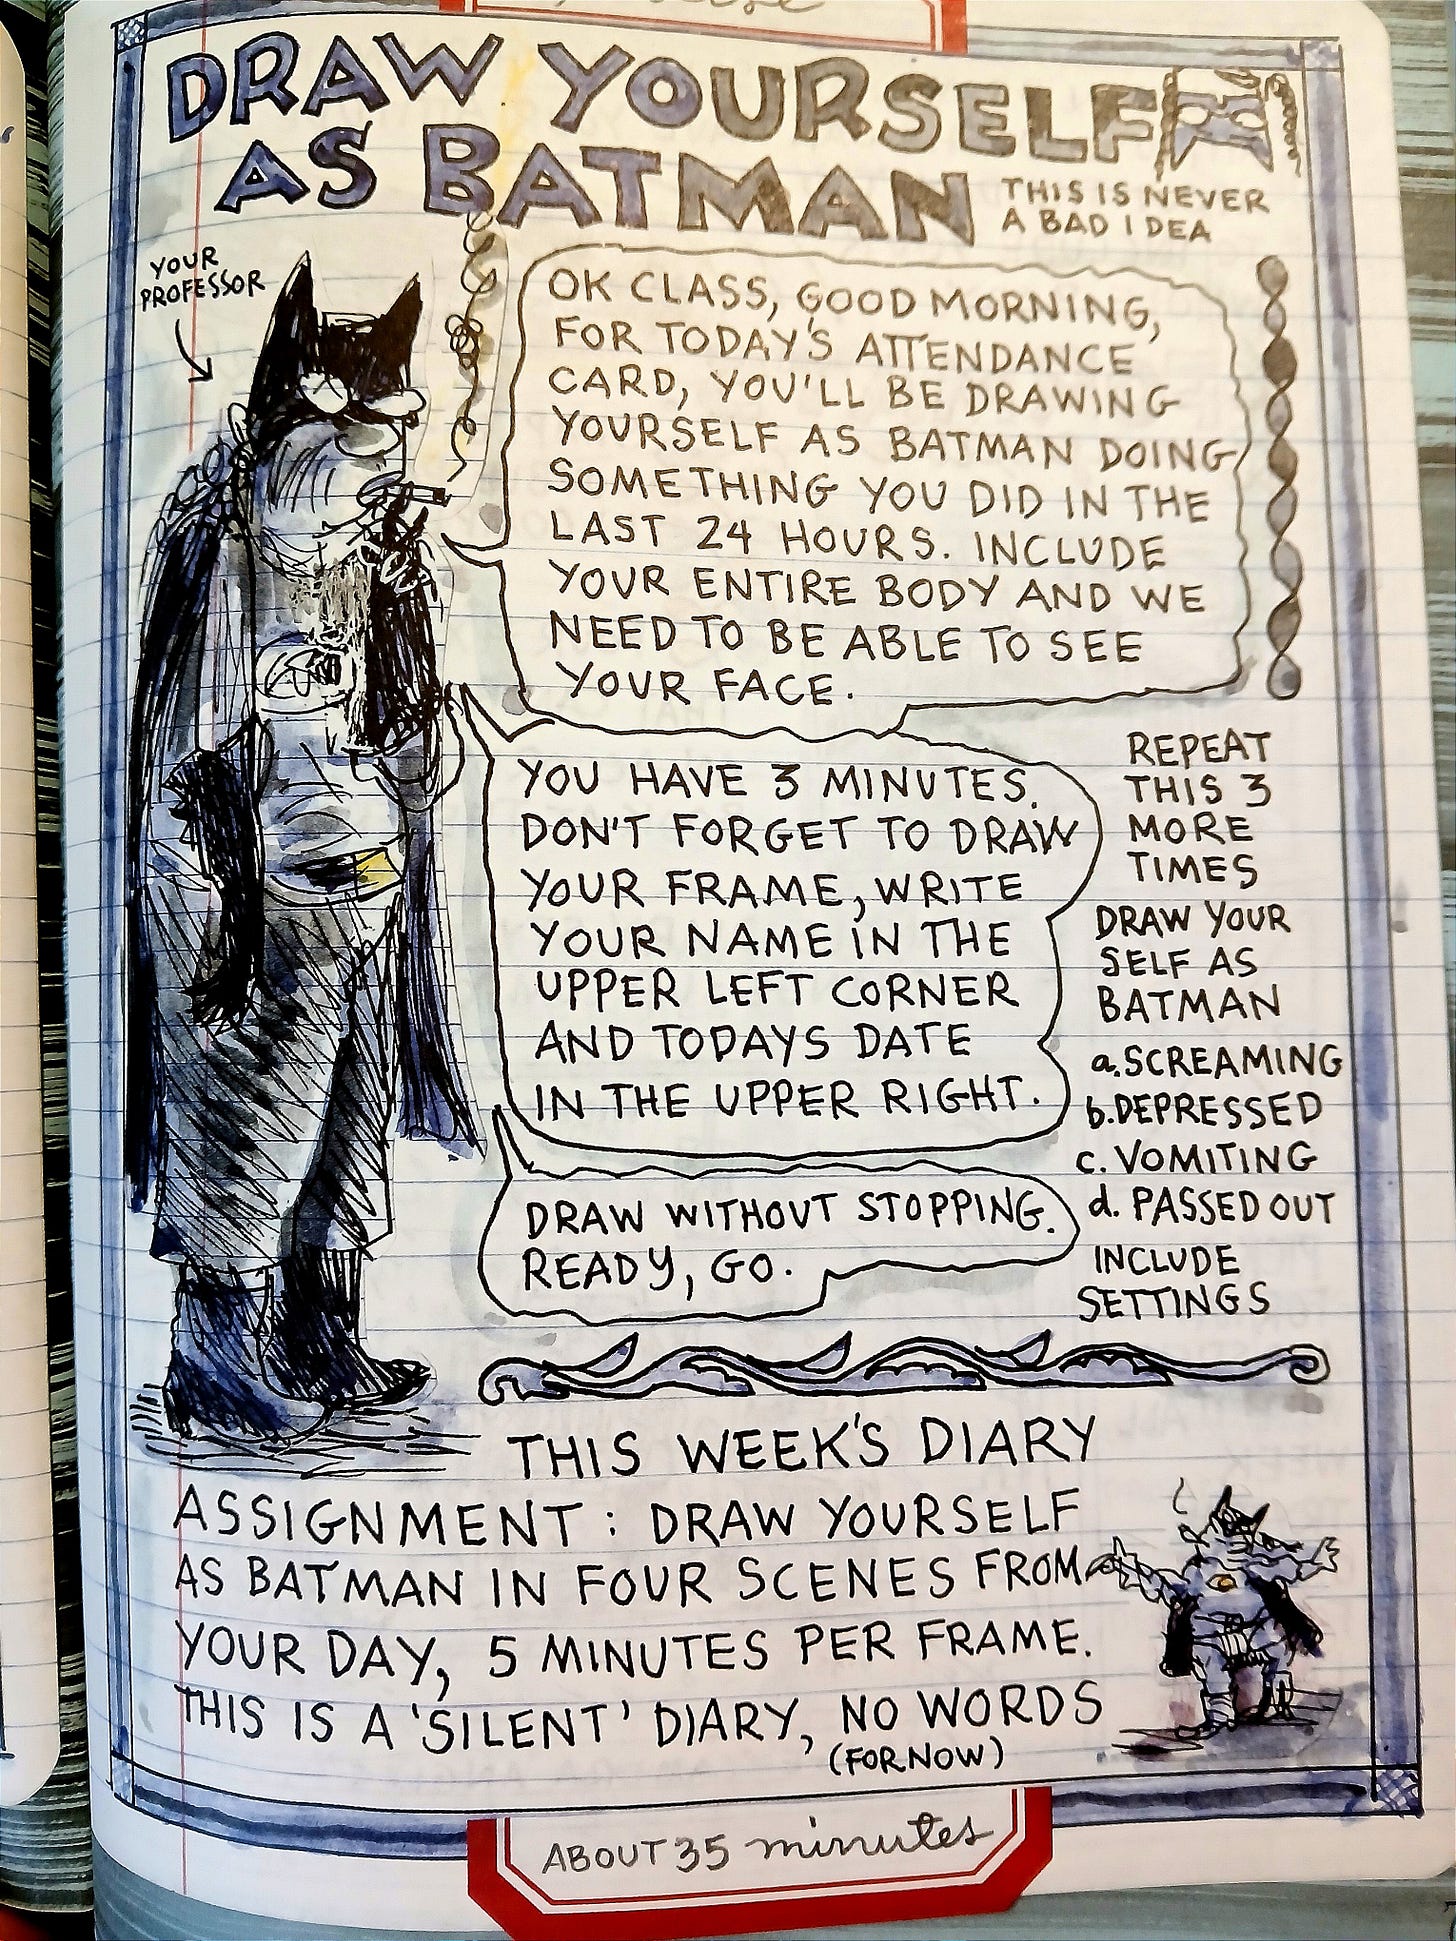 DRAW YOURSELF
AS BATMAN
THIS IS NEVER
A BAD IDEA
YOUR
PROFESSOR
OK CLASS, GOOD MORNING,
FOR TODAY'S ATTENDANCE
CARD, YOU'LL BE DRAWING
YOURSELF AS BATMAN DOING
SOMETHING YOU DID IN THE
LAST 24 HOURS. INCLUDE
YOUR ENTIRE BODY AND WE
NEED TO BE ABLE TO SEE
YOUR FACE.
YOU HAVE 3 MINUTES.
DON'T FORGET TO DRAW
YOUR FRAME, WRITE
YOUR NAME IN THE
UPPER LEFT CORNER
AND TODAYS DATE
IN THE UPPER RIGHT.
DRAW WITHOUT STOPPING.
READY, GO.
REPEAT
THIS 3
MORE
TIMES
DRAW YOUR
SELF AS
BATMAN
a. SCREAMING
b. DEPRESSED
c. VOMITING
d. PASSED OUT
INCLUDE
SETTINGS
THIS WEEK'S DIARY
ASSIGNMENT : DRAW YOURSELF
AS BATMAN IN FOUR SCENES FROM
YOUR DAY, 5 MINUTES PER FRAME.
THIS IS A 'SILENT' DIARY, NO WORDS
(FOR NOW)
ABOUT 35 minutes